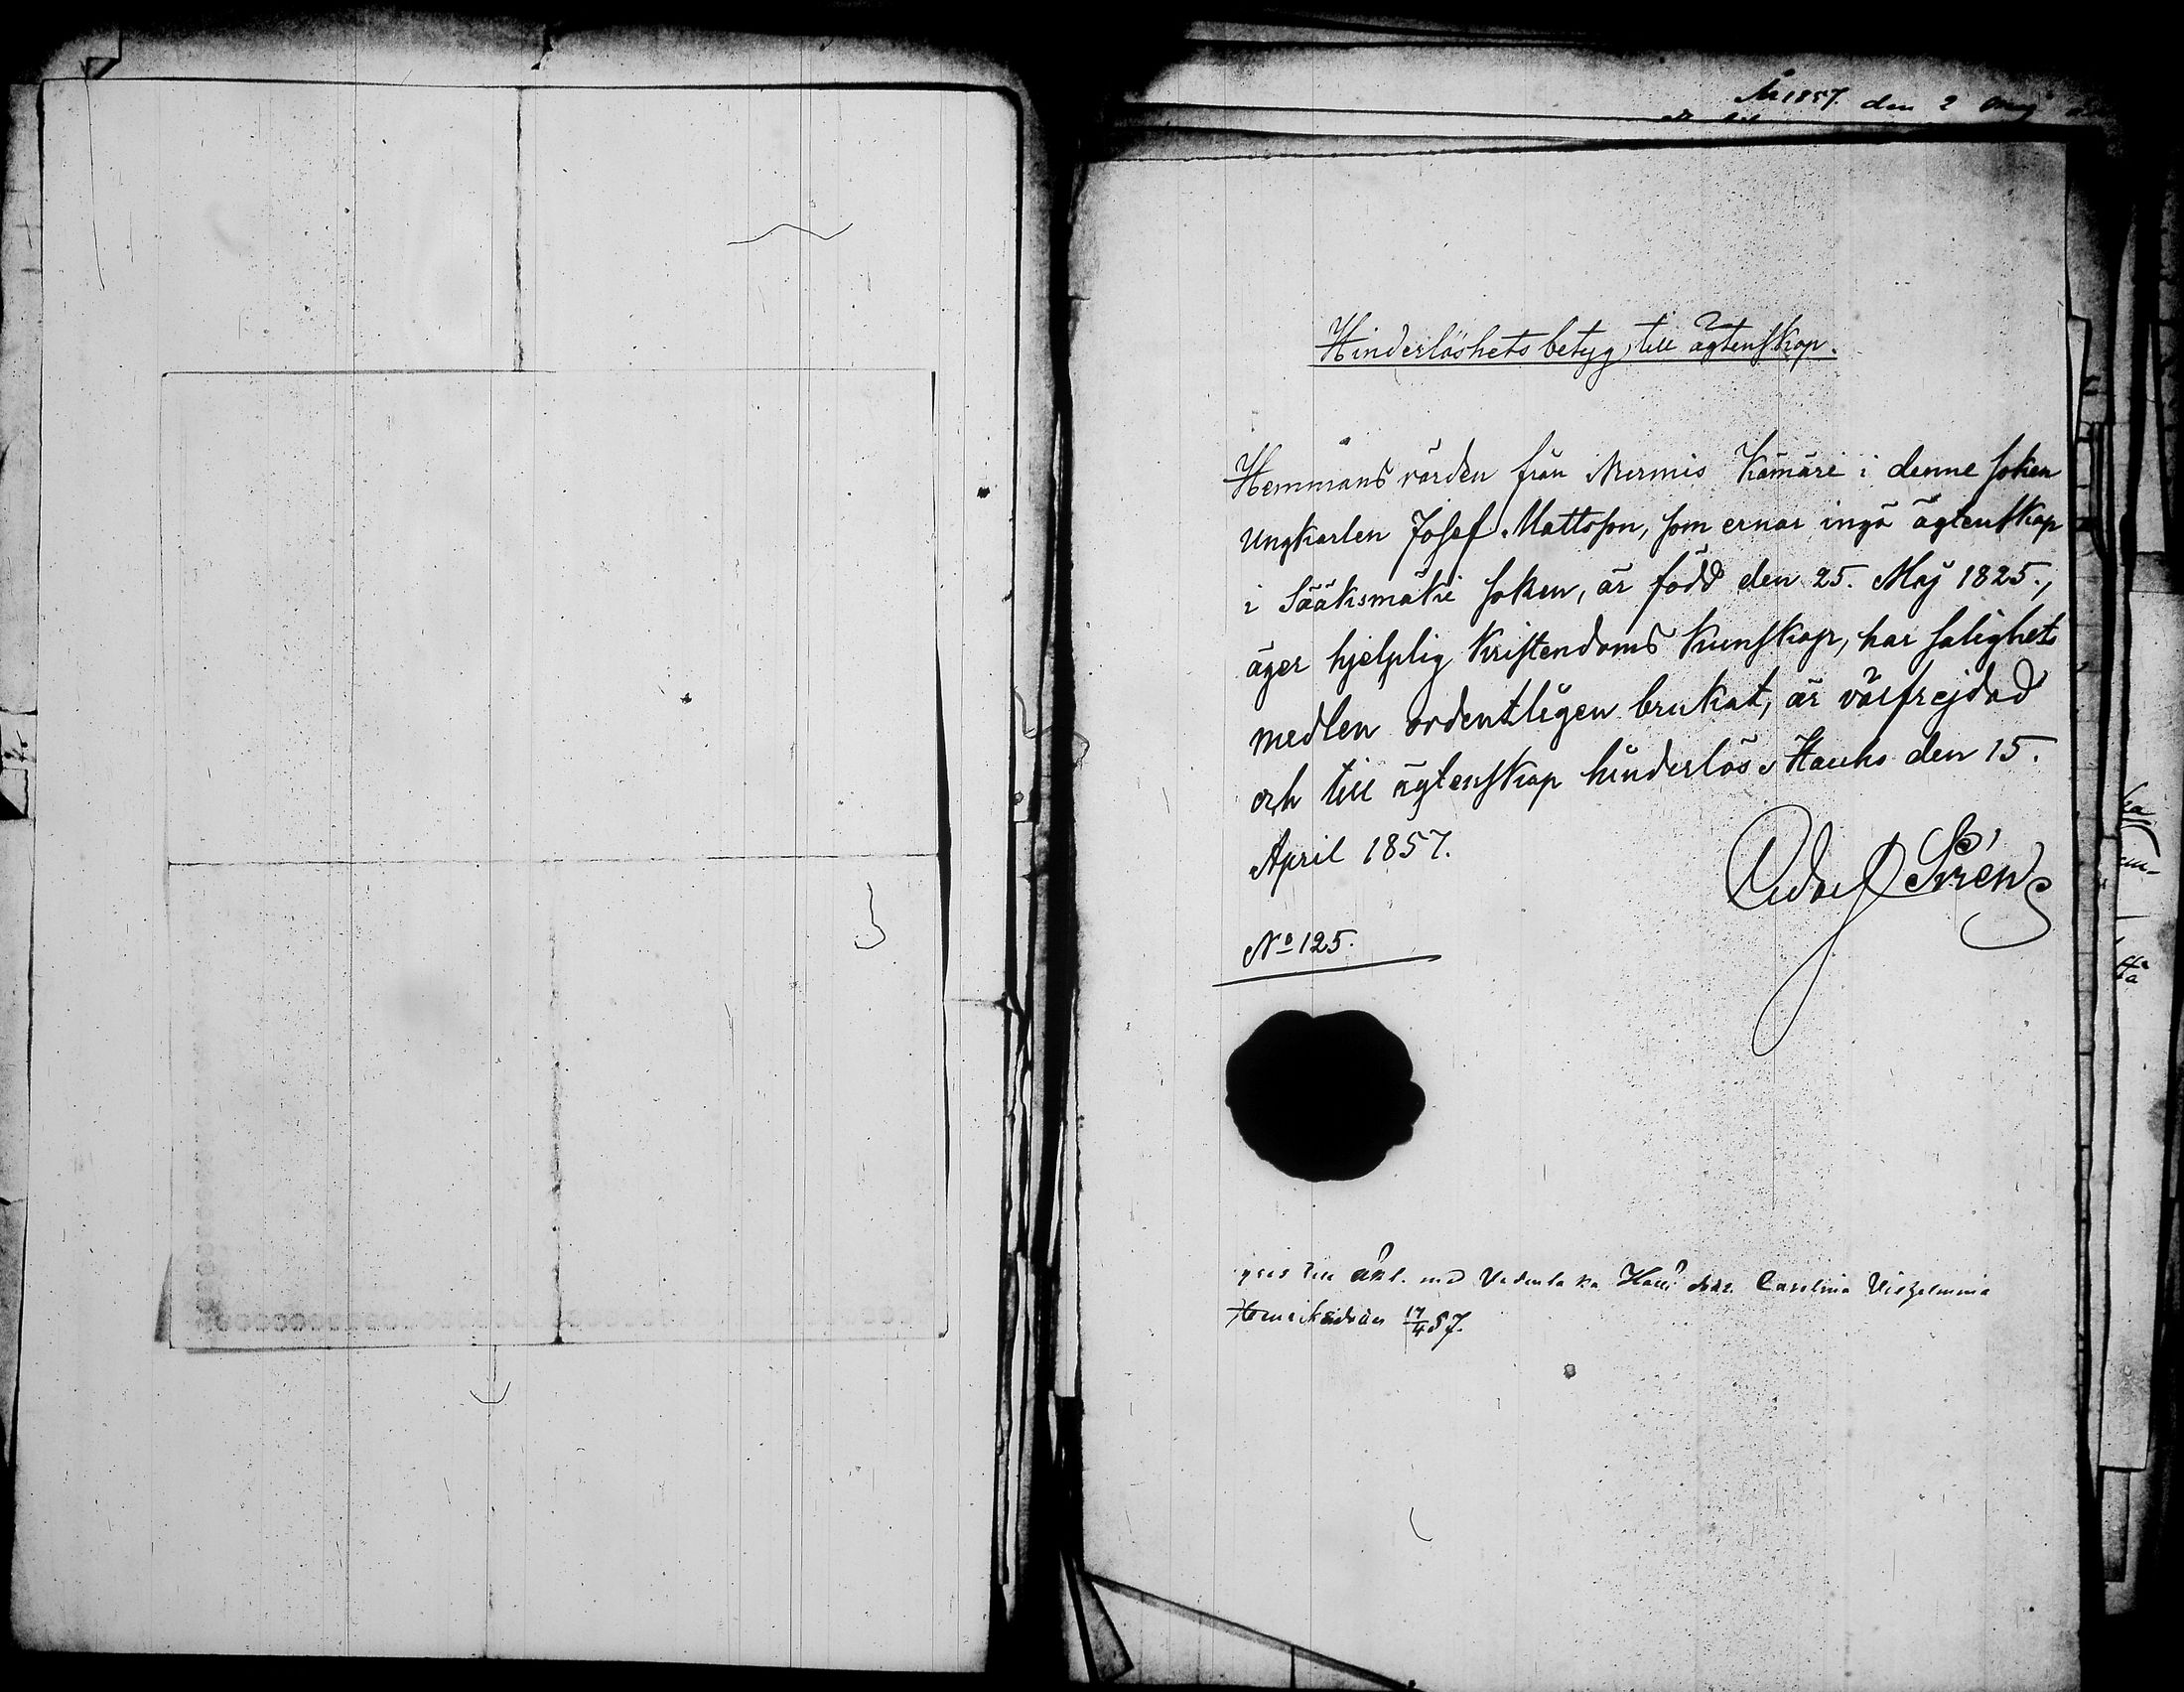 År 1857. den 2 Maj
Hinderlöshets betyg, till ägtenskap.
Hemmans värden från Nurmis Kämäri i denne soken
ungkarlen Josef Mattsson, som ernar ingå ägtenskap
i Sääksmäki soken, är född den 25. Maj 1825.,
äger hjelplig Kristendoms Kunskap, har salighets
medlen ordentligen brukat, är välfrejdad
och till ägtenskap hinderlös. Hauho den 15.
April 1857.
Adolf Sirén
No 125.
till med Carolina Vilhelmina
Henriksdr 17/4 57.